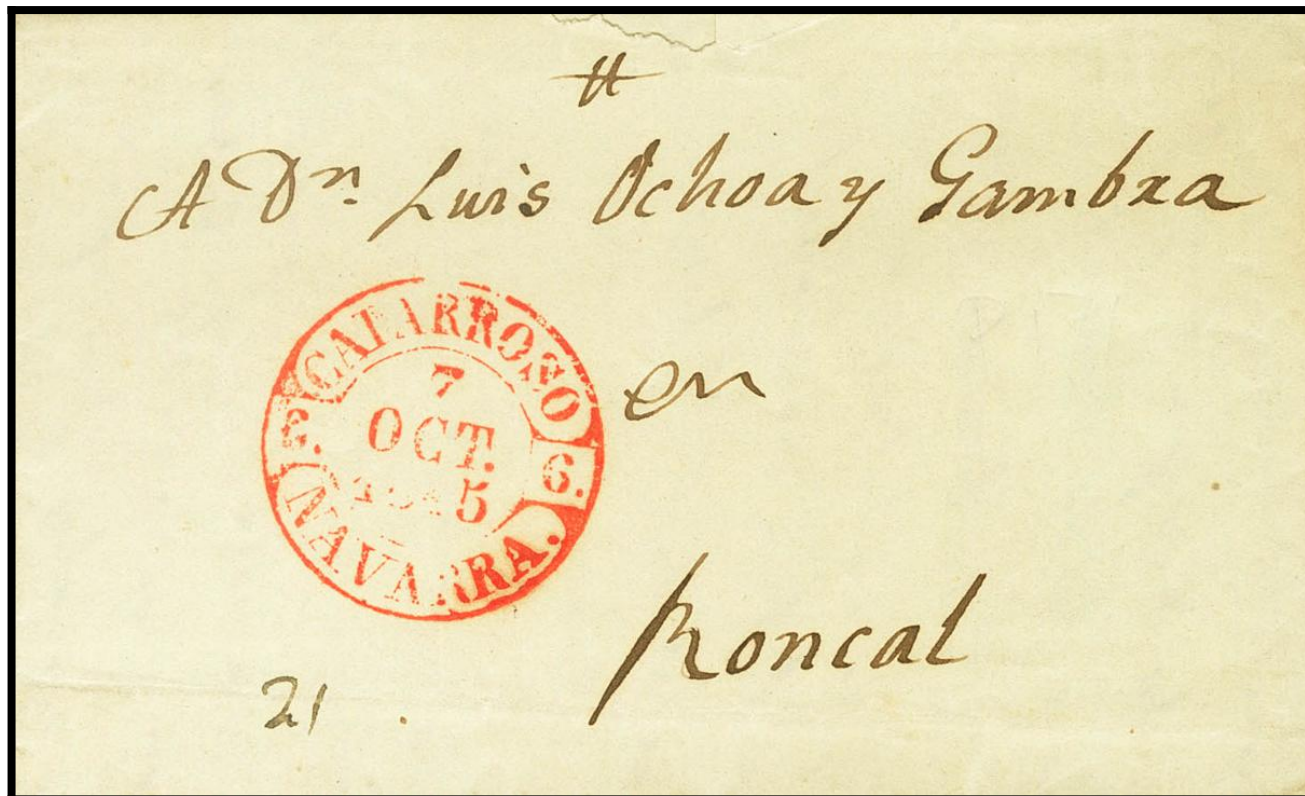 A Dn. Luis Ochoa y Gambra
CAPARROSO
7
OCT.
1845
6.
NAVARRA.
en
Roncal
21